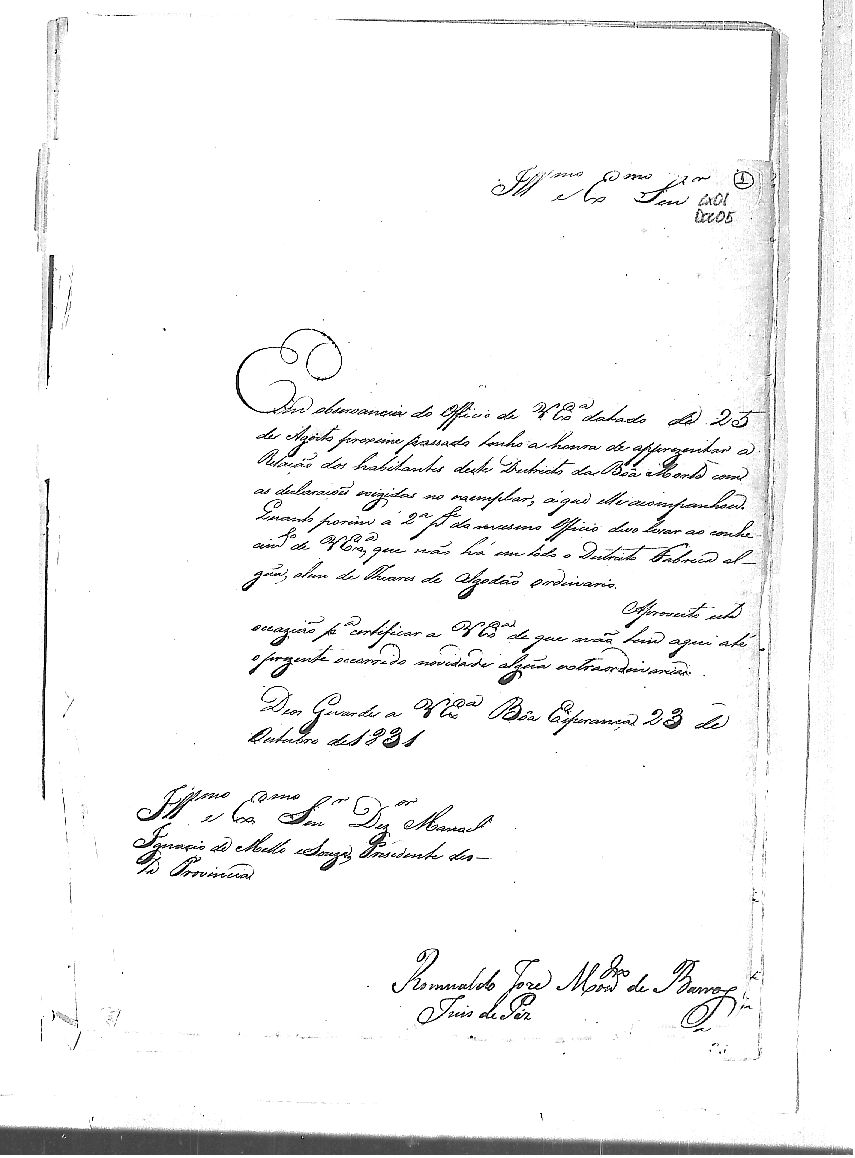 Illmo e Exmo Senr
1
Cx01
Doc05
Em observancia do Officio de VExa datado de 25
de Agosto proximo passado tenho a honra de apprezentar a
Relação dos habitantes deste Districto da Bôa Morte com
as declarações exigidas no exemplar, q' que elle acompanhou.
Quanto porém á 2a pte do mesmo Officio devo levar ao conhe-
cimto de VExa, que não há em todo o Districto Fabrica al-
gũa, alem de Theares de algodão ordinario.
Aproveito esta
occazião pa certificar a VExa de que não tem aqui até
o prezente occorrido novidade algũa extraordinaria.
Deos Guarde a VExa Bôa Esperança 23 de
Outubro de 1831
Illmo e Exmo Senr Dezor Manoel
Ignacio de Mello e Souza, Presidente des-
ta Provincia
Romualdo Jozé Mondro de Barros
Juis de Páz